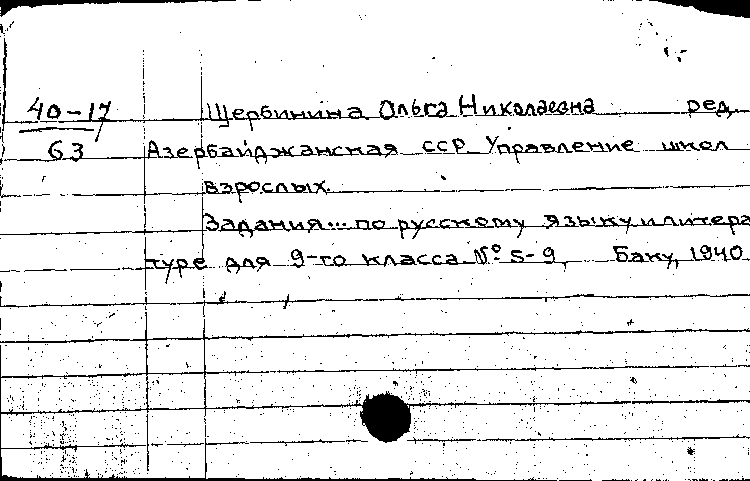 40-17 Щербинина Ольга Николаевна ред.
63 Азербайджанская ССР. Управление школ
взрослых.
Задания... по русскому языку и литера
туре для 9-го класса. № 5-9, Баку, 1940